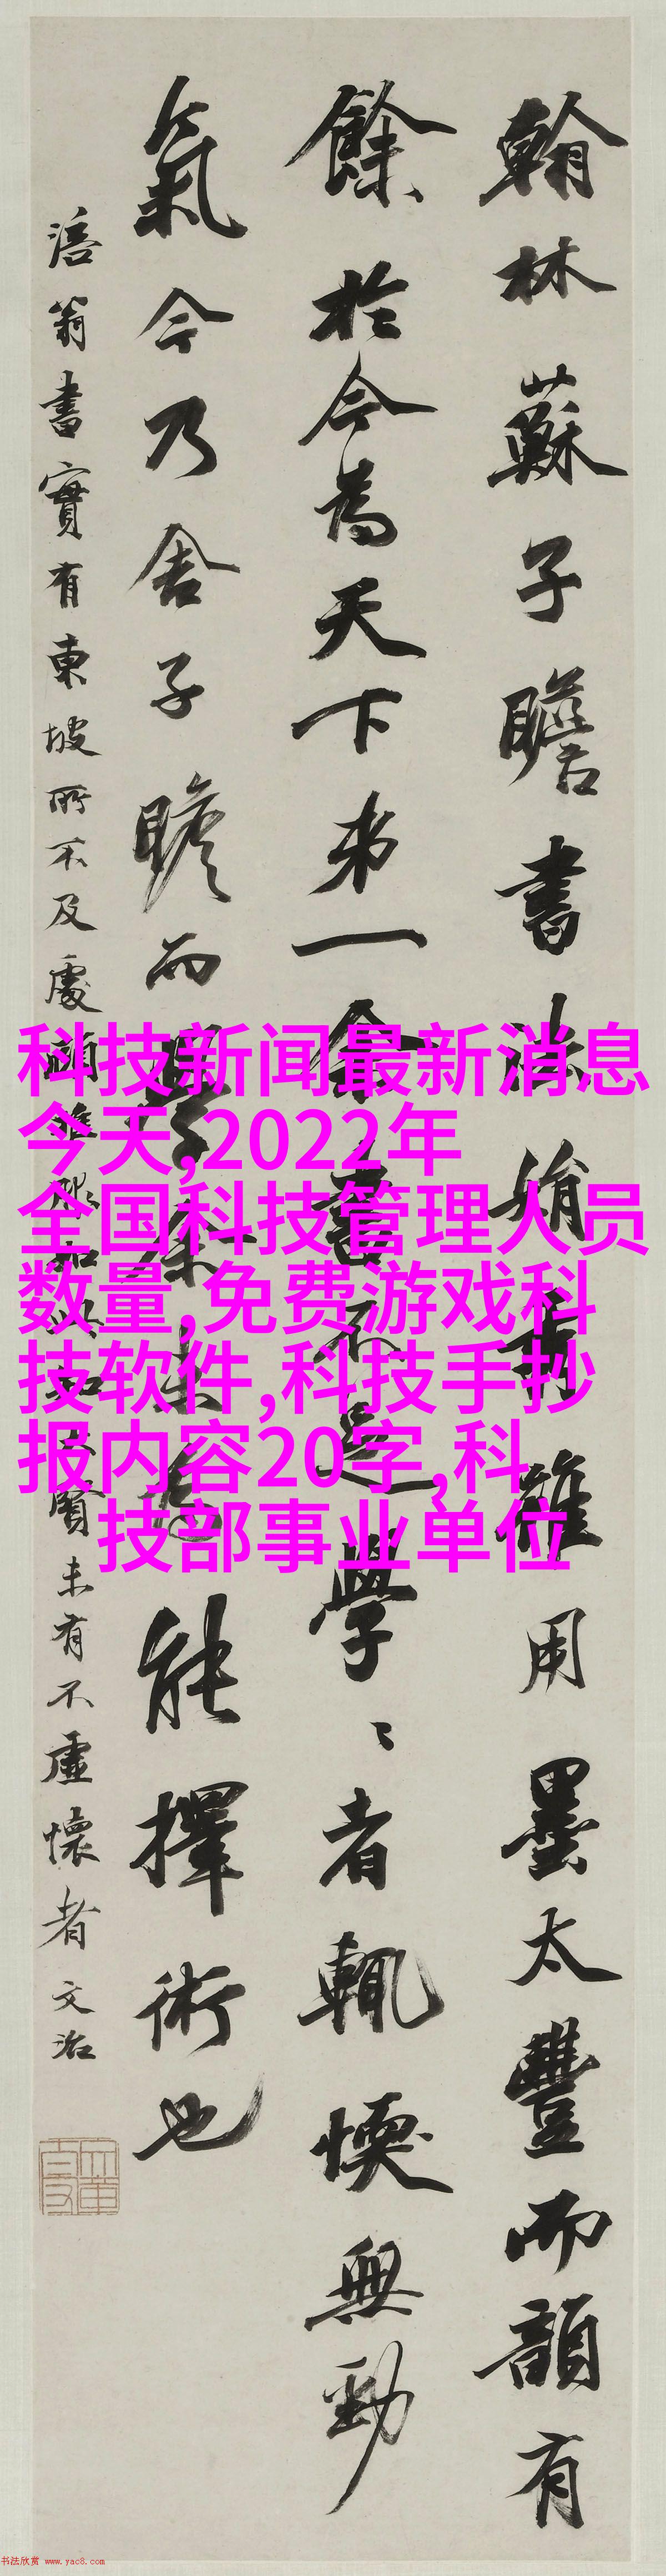 翰林蘇子瞻書法娟秀雖用墨太豐而韻有
餘於今為天下弟一余書不足學〻者輒愞無勁
氣今乃舍子瞻而學余未為能擇術也
涪翁書實有東坡所不及處顧推服如此知賢未有不虛懷者文治
科技新闻最新消息
今天,2022年
全国科技管理人员
数量,免费游戏科
技软件,科技手抄
报内容20字,科
技部事业单位
书法欣赏 www.yac8.com